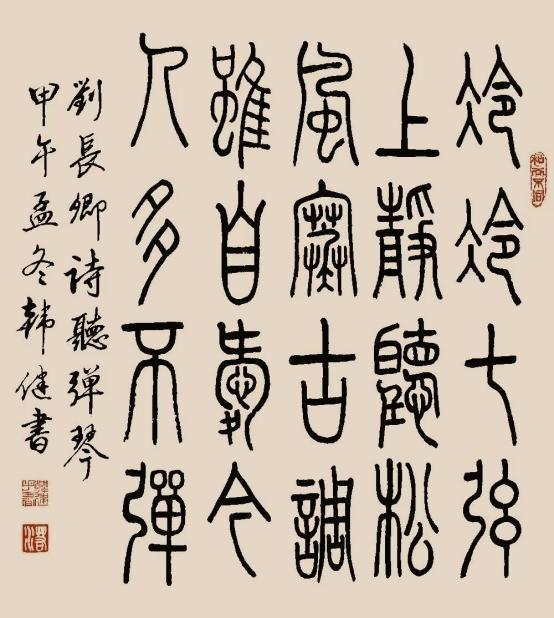 泠泠七弦
上静聽松
風寒古調
雖自愛今
人多不彈
劉長卿詩聽彈琴
甲午孟冬韩健書